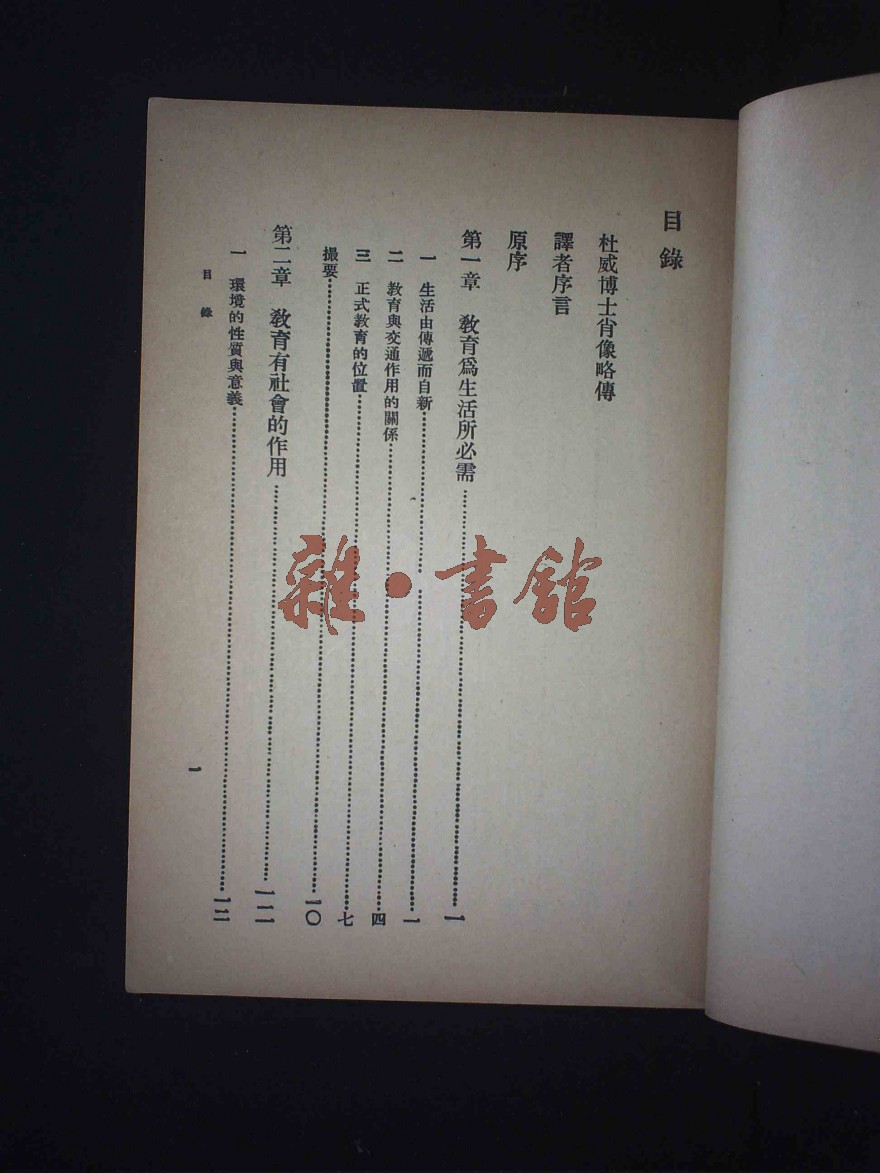 目錄
杜威博士肖像略傳
譯者序言
原序
第一章 教育爲生活所必需⋯⋯一
一 生活由傳遞而自新⋯⋯一
二 教育與交通作用的關係⋯⋯四
三 正式教育的位置⋯⋯七
撮要⋯⋯一〇
第二章 教育有社會的作用⋯⋯一二
一 環境的性質與意義⋯⋯一二
目錄
一
雜·書館